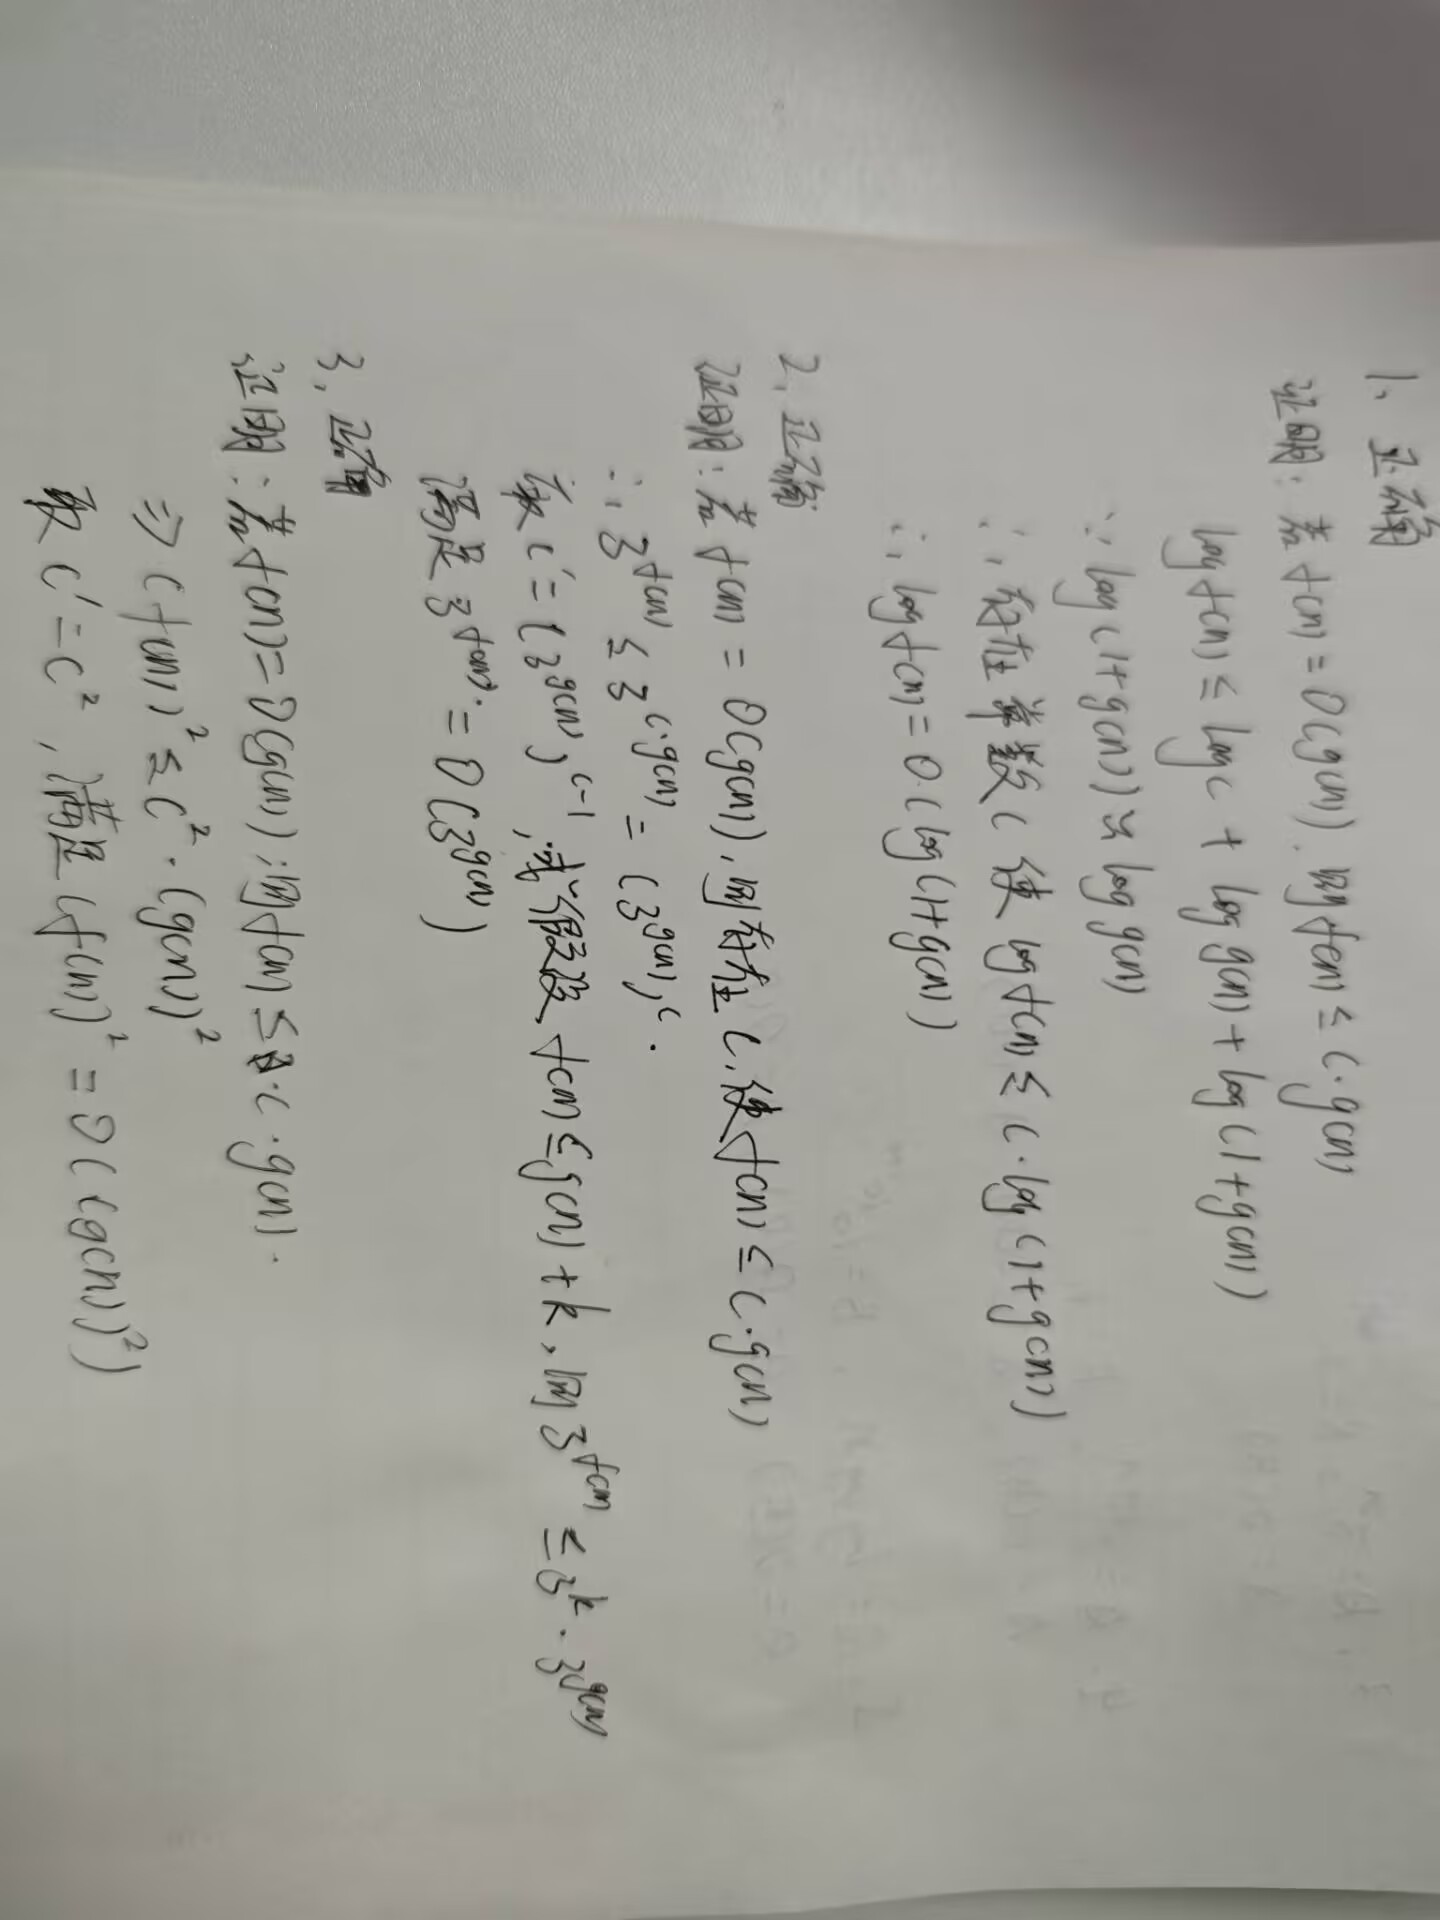 1、正确
证明：若 f(n) = O(g(n)). 则 f(n) ≤ c·g(n)
log f(n) ≤ log c + log g(n) + log(1+g(n))
∵ log(1+g(n)) ≈ log g(n)
∴ 存在常数 c 使 log f(n) ≤ c·log(1+g(n))
∴ log f(n) = O(log(1+g(n))
2、正确
证明：若 f(n) = O(g(n)), 则存在 c, 使 f(n) ≤ c·g(n)
∴ 3^{f(n)} ≤ 3^{c·g(n)} = (3^{g(n)})^c.
取 c' = (3^{g(n)})^{c-1}, 或假设 f(n) ≤ g(n)+k, 则 3^{f(n)} ≤ 3^k·3^{g(n)}
满足 3^{f(n)} = O(3^{g(n)})
3、正确
证明：若 f(n) = O(g(n)); 则 f(n) ≤ ·c·g(n).
⇒ (f(n))² ≤ c²·(g(n))²
取 c' = c², 满足 (f(n))² = O((g(n))²)